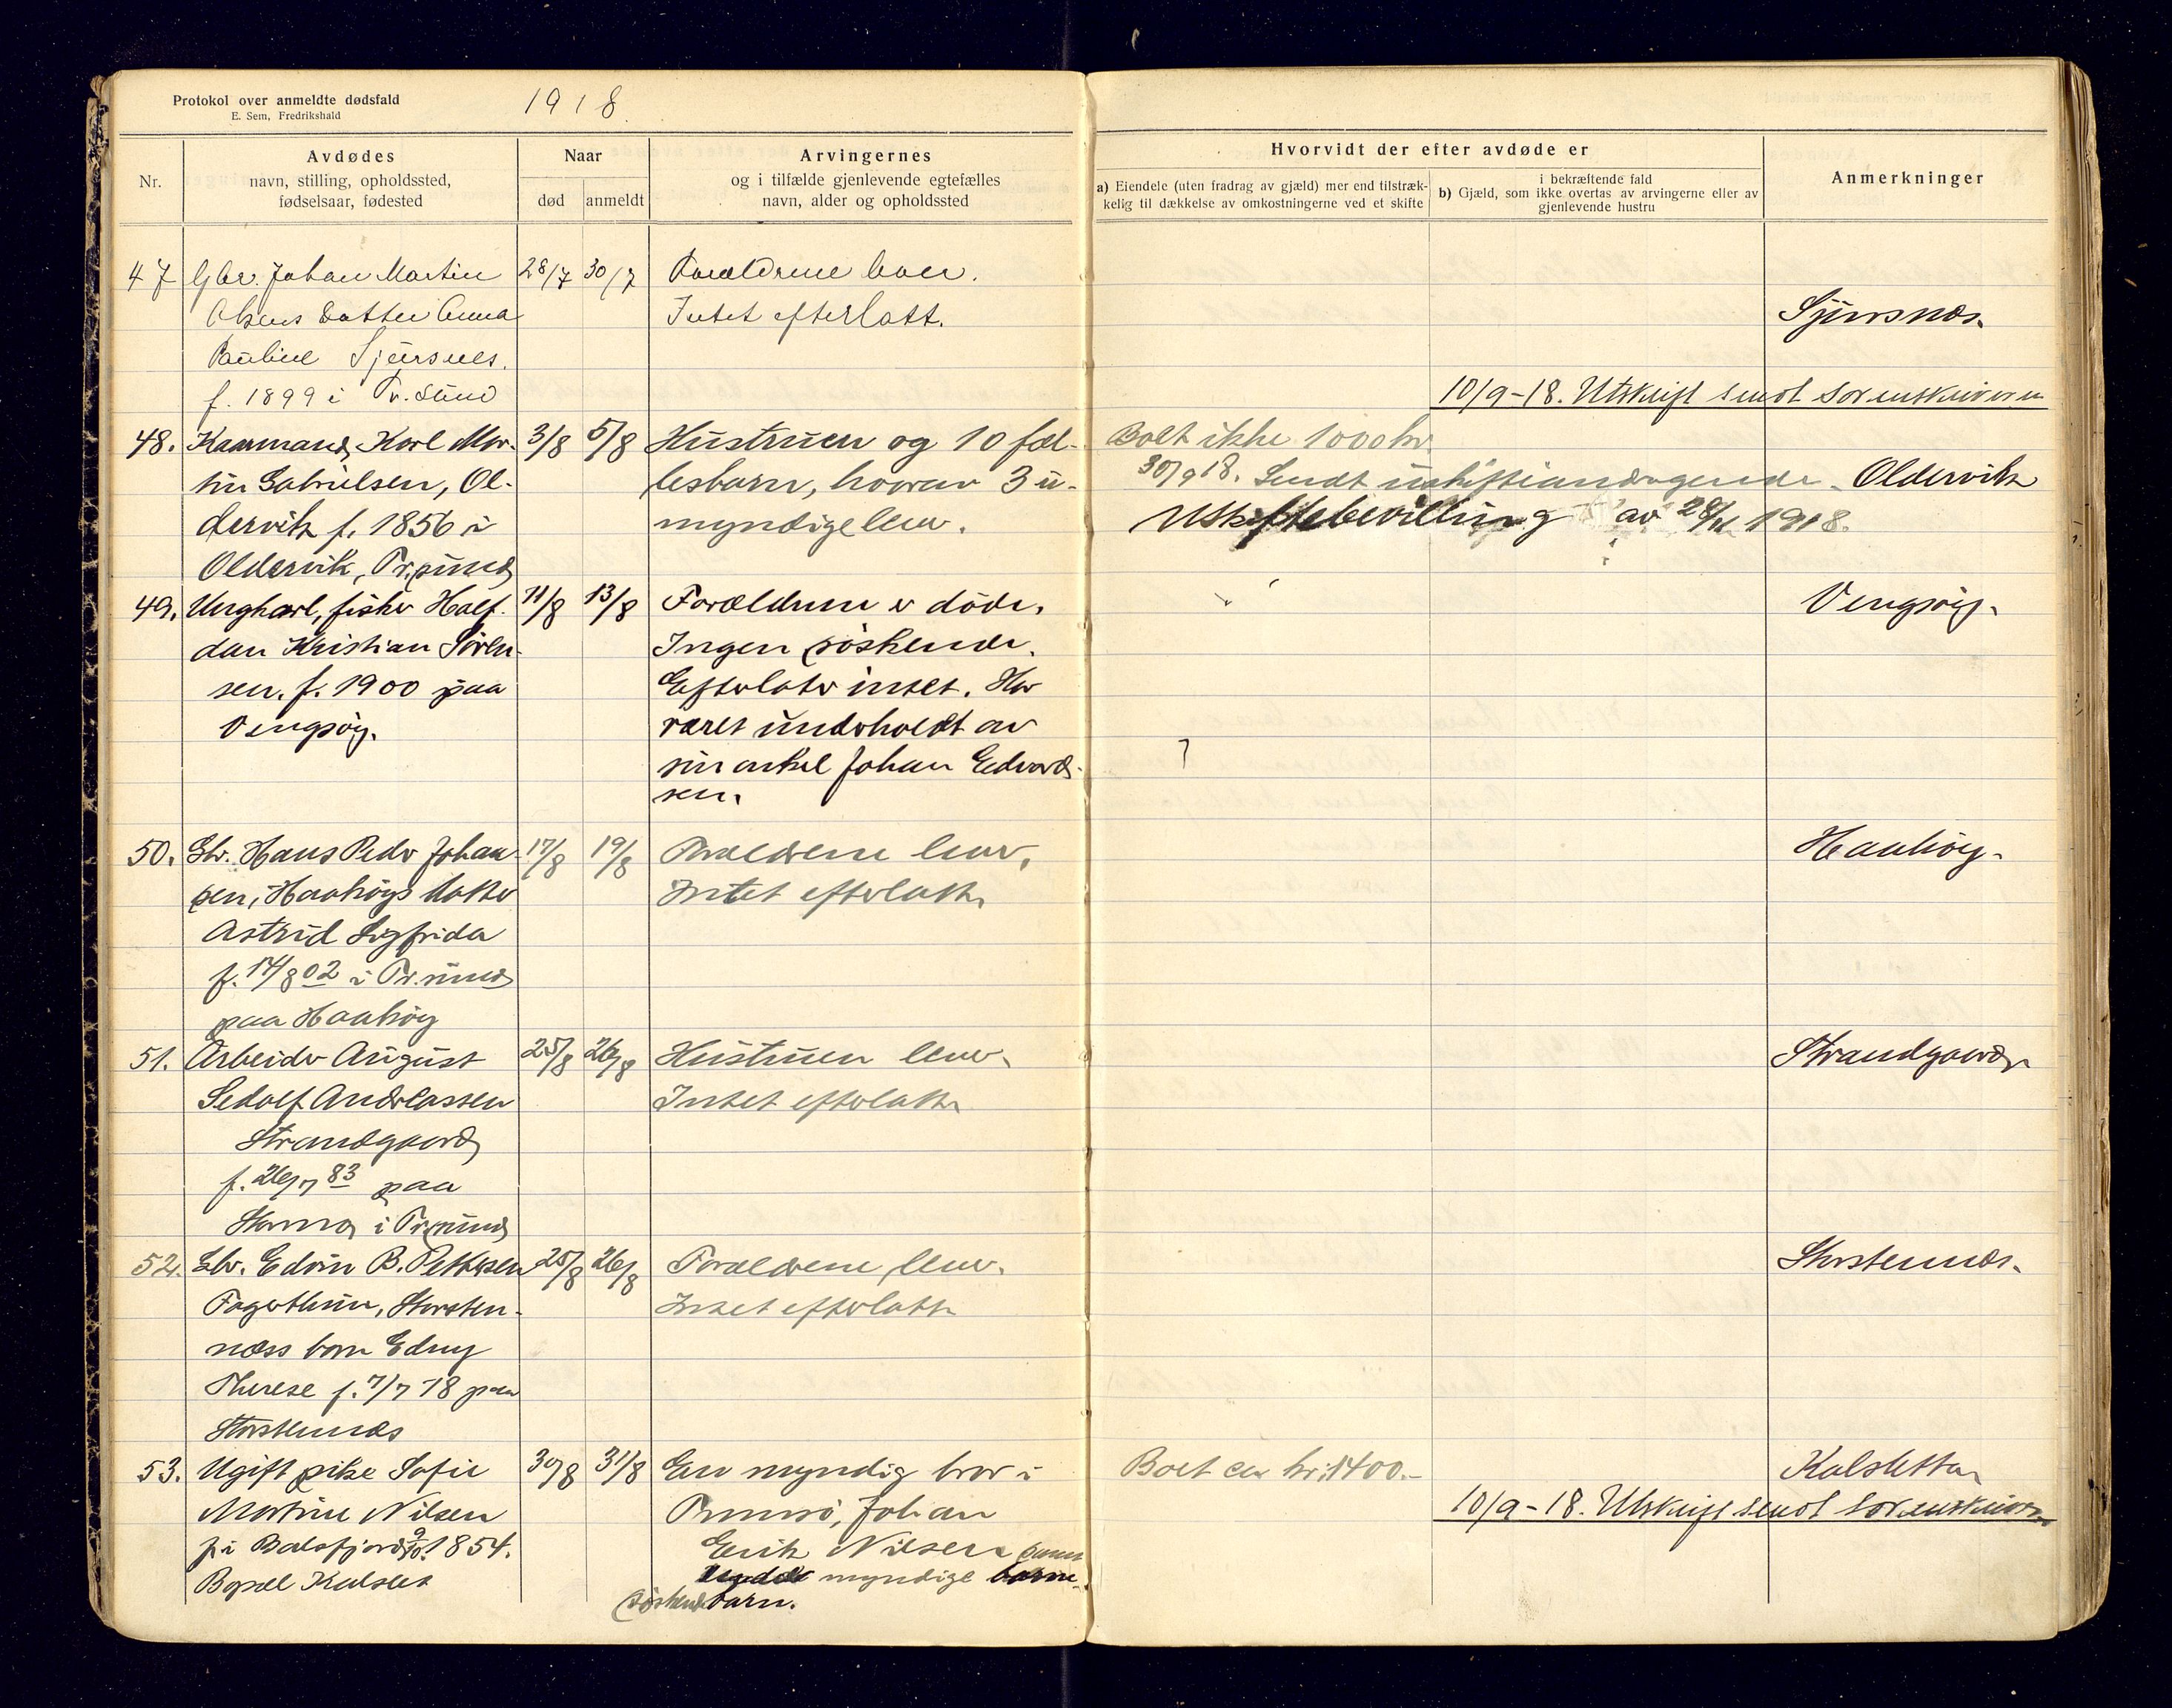 Protokol over anmeldte dødsfald
E. Sem, Fredrikshald
1918.
Nr.
Avdødes
navn, stilling, opholdssted,
fødselsaar, fødested
Naar
død
anmeldt
Arvingernes
og i tilfælde gjenlevende egtefælles
navn, alder og opholdssted
Hvorvidt der efter avdøde er
a) Eiendele (uten fradrag av gjæld) mer end tilstræk-
kelig til dækkelse av omkostningerne ved et skifte
i bekræftende fald
b) Gjæld, som ikke overtas av arvingerne eller av
gjenlevende hustru
Anmerkninger
47 Gbr. Johan Martin 28/7 30/7 Forældrene lever.
Olsens datter Anna Intet efterlatt. Sjursnes.
Pauline Sjursnes.
f. 1899 i Tr.sund 10/9-18. Utskrift sendt sorenskriveren
48. Kaarmand Karl Mar- 3/8 5/8 Hustruen og 10 fæl- Boet ikke 1000 kr.
tin Gabrielsen, Ol- lesbarn, hvorav 3 u- 30/9 18. Sendt uskifteandragende. Oldervik
dervik f. 1856 i myndige lever. Uskiftebevilling av 28/11 1918.
Oldervik, Tr.sund
49. Ungkarl, fisker Half- 11/8 13/8 Forældrene er døde. Vengsøy.
dan Kristian Søren- Ingen søskende.
sen. f. 1900 paa Efterlater intet. Har
Vengsøy. været underholdt av
sin onkel Johan Edvard-
sen.
50. Gbr. Hans Peder Johan- 17/8 19/8 Forældrene lever. Haakøy.
sen, Haakøys datter Intet efterlatt.
Astrid Sigfrida
f. 14/8 02 i Tr.sund
paa Haakøy
51. Arbeider August 25/8 26/8 Hustruen lever. Strandgaard
Sedolf Andreassen Intet efterlatt.
Strandgaard
f. 26/7 83 paa
i Tr.sund
52. Gbr. Edvin B. Pettersen 25/8 26/8 Forældrene lever. Storstennæs.
Fagertun, Storsten- Intet efterlatt
næss barn Edny
Therese f. 7/7 18 paa
Storstennæs
53. Ugift pike Sofie 30/8 31/8 En myndig bror i Boet ca kr. 1400.- Kalsletta
Martine Nilsen Tromsø, Johan 10/9-18. Utskrift sendt sorenskriveren
f. i Balsfjord 9/10 1854. Erik Nilsen samt
Bopæl Kalslet myndige
søskendebarn.